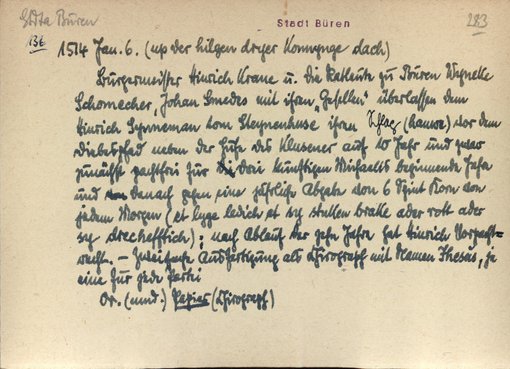 Stadt Büren
Stadt Büren 283
Bk. 1514 Jan. 6. (up der hilgen dryer Konnynge dach)
Bürgermeister Hinrich Krane u. die Ratleute zu Büren Wyneke
Schomecher, Johan Smedes mit ihren „Gesellen" überlassen dem
Hinrich Synneman vom Steynenhuse ihren (kampe) vor dem
neben der Hufe des Klusener auf 10 Jahr und zwar
zunächst pachtfrei für die drei künftigen Michaelis beginnende Jahre
und danach gegen eine jährliche Abgabe von 6 Spint Korn von
jedem Morgen (et lygge ledich et sy stullen brake ader rott ader
sy drechafftich); nach Ablauf der zehn Jahre hat Hinrich Vorpacht-
recht. – Zweifache Ausfertigung als Chirograph mit Namen Ihesus, je
eine für jede Partei
Or. (mnd.) Papier (Chirograph)